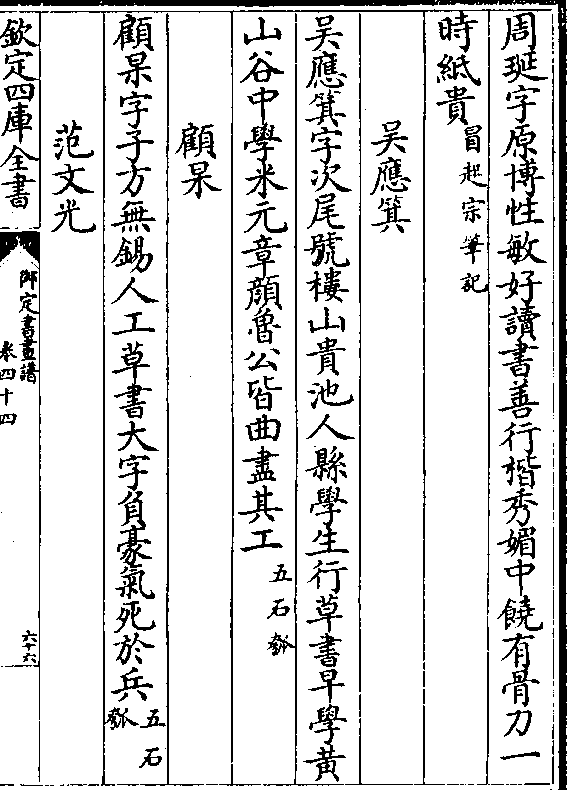 周珽字原博性敏好讀書善行楷秀媚中饒有骨力一
時紙貴 冒起宗筆記
吳應箕
吳應箕字次尾號樓山貴池人縣學生行草書早學黄
山谷中學米元章顔魯公皆曲盡其工 五石瓠
顧杲
顧杲字子方無錫人工草書大字負豪氣死於兵 五石瓠
范文光
欽定四庫全書
御定書畫譜
卷四十四
六十六